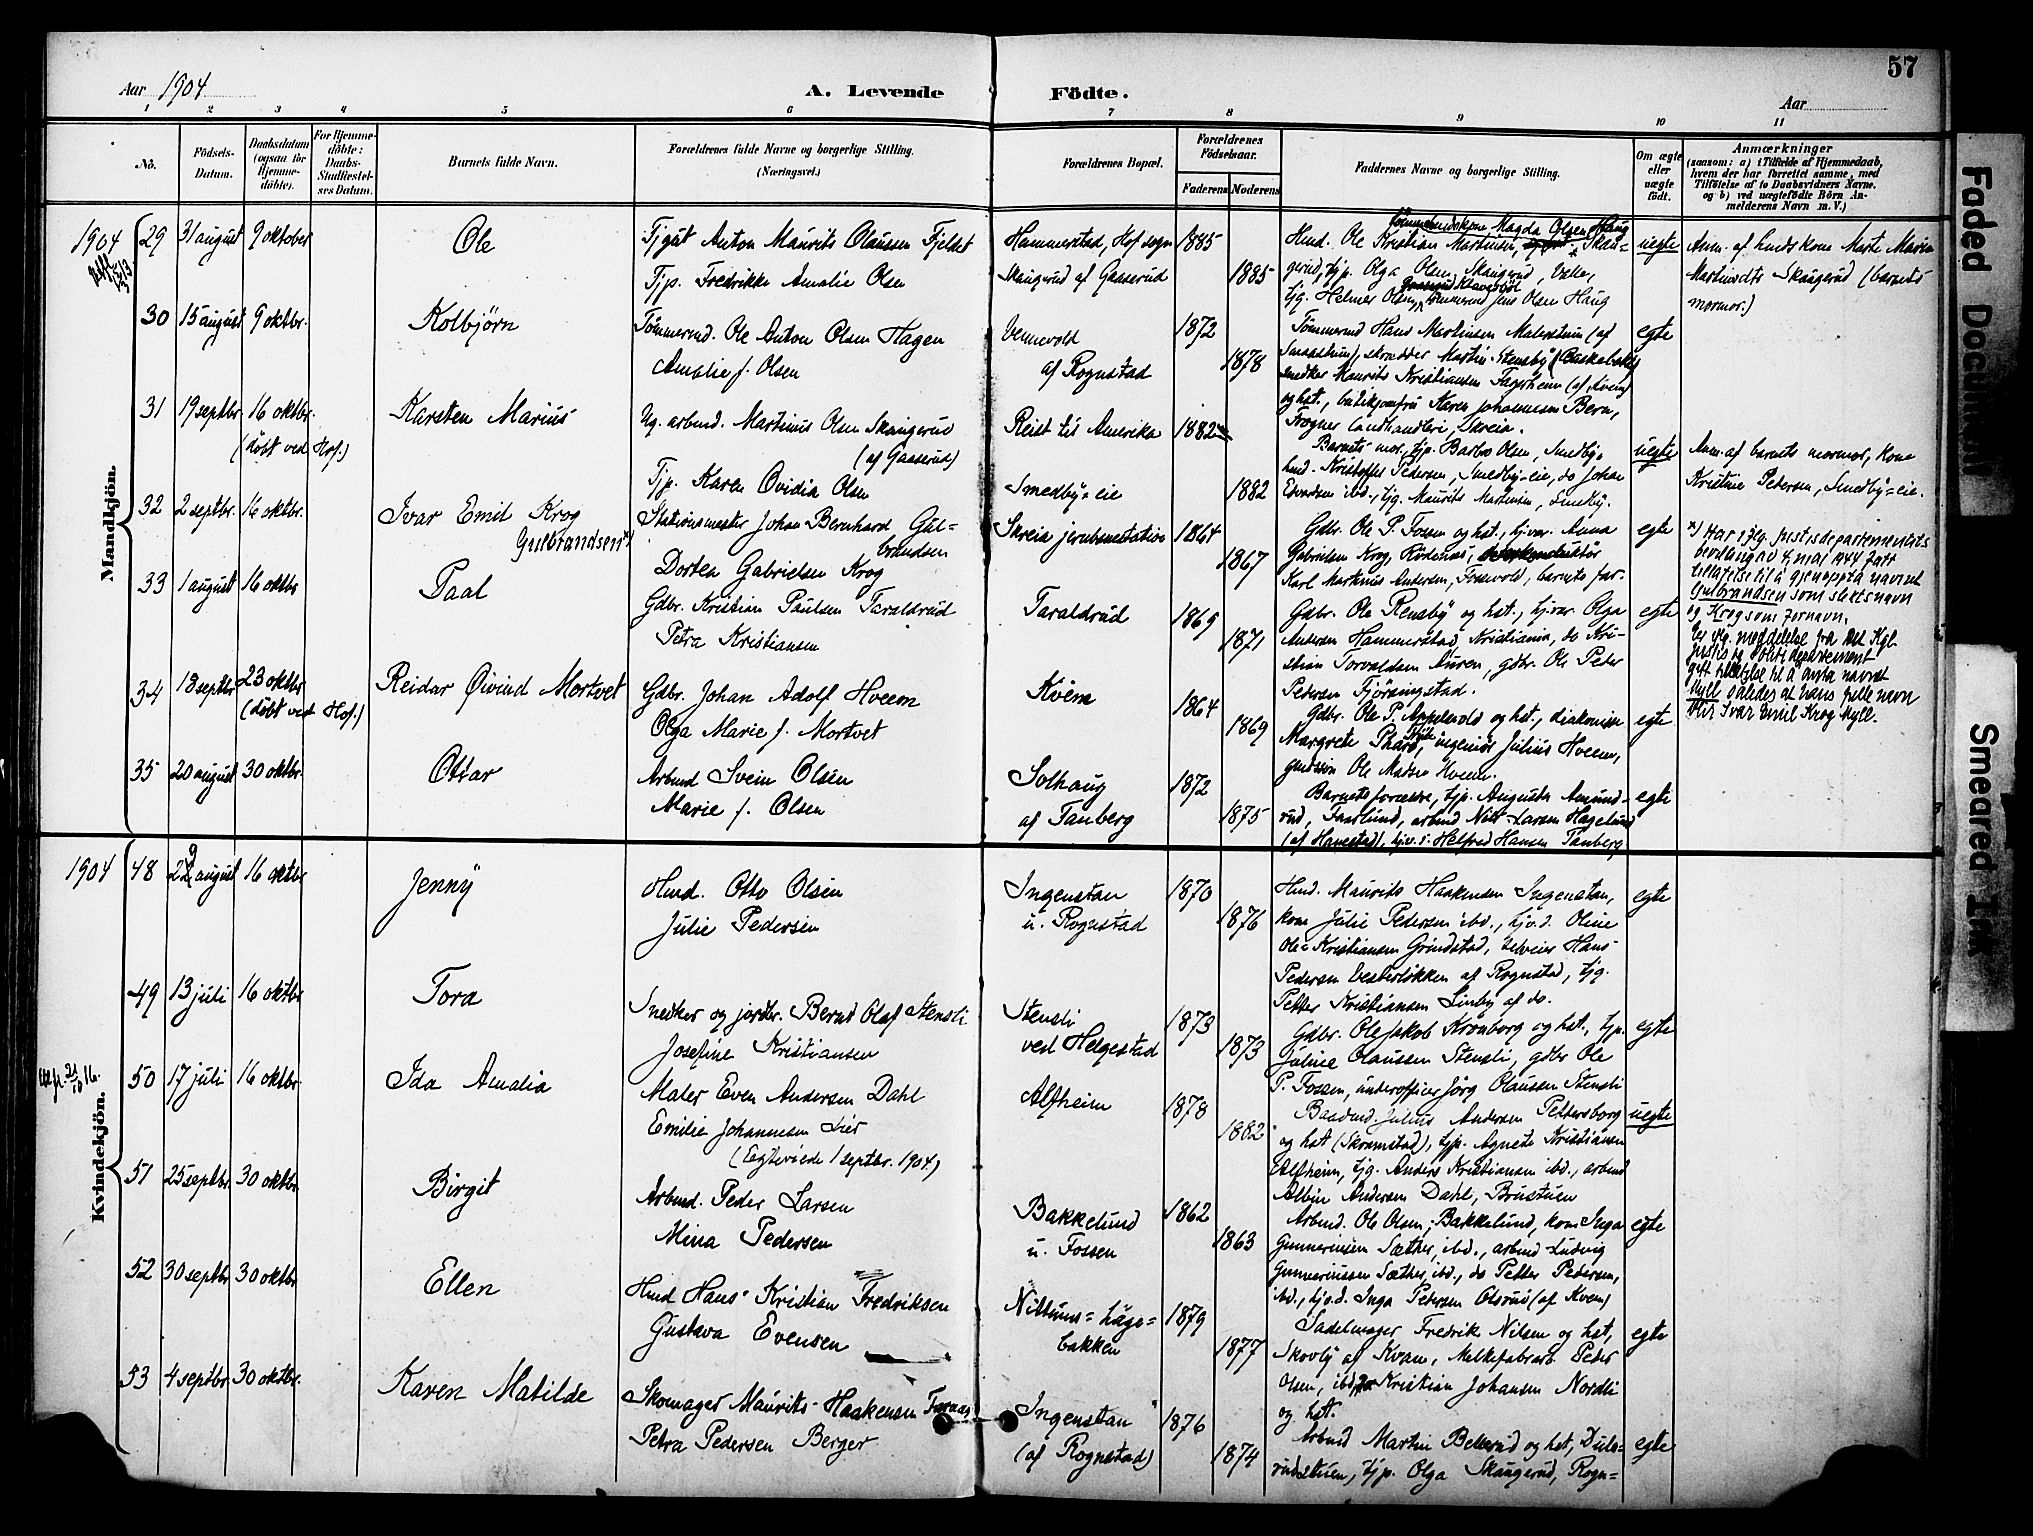 57
Aar 1904
A. Levende Födte.
Aar
1 2 3 4 5 6 7 8 9 10 11
No.
Födsels-Datum.
Daabsdatum (ogsaa for Hjemme-döbte).
For Hjemme-döbte: Daabs-Stadfæstel-ses Datum.
Barnets fulde Navn.
Forældrenes fulde Navne og borgerlige Stilling.
(Næringsvei.)
Forældrenes Bopæl.
Forældrenes Födselsaar.
Faderens Moderens
Faddernes Navne og borgerlige Stilling.
Om ægte eller uægte födt.
Anmærkninger
(saasom: a) i Tilfælde af Hjemmedaab,
hvem der har forrettet samme, med
Tilföielse af to Daabsvidners Navne.
og b) ved uægtefödte Börn An-
melderens Navn m. V.)
Mandkjön.
1904
29 31 august 9 oktober Ole
Tjgut Anton Maurits Olaussen Fjeldet
Tjp. Fredrikke Amalie Olsen
Hammerstad, Hof sogn 1885
Skaugerud af Gaaserud 1885
Hmd. Ole Kristian Martinsen, Skau-
gerud, tjp. Olga Olsen Skaugerud,
tjg. Helmer Olsen, Jens Olsen Haug
uegte
Anm. af husds kone Marte Marie
Martinsdts Skaugerud (barnets
mormor.)
30 15 august 9 oktbr. Kolbjörn
Tömmermd. Ole Anton Olsen Hagen
Amalie f. Olsen
Vennevold 1872
af Rognstad 1878
Tömmermd Hans Martinsen
skrædder Martin Stensby
snedker Maurits Kristiansen Fagerheim (af Kvem)
og hst., butikjomfru Karen Johannesen Bern,
Frognes Landhandleri, Skreia.
egte
31 19 septbr. 16 oktbr. Karsten Marius
(döbt ved Hof.)
Ug. arbmd. Martinus Olsen Skaugerud
(af Gaaserud)
Tjp. Karen Ovidia Olsen
Reist til Amerika 1882
Smedby=eie 1882
Barnets mor, tjp. Barbro Olsen, Smedby,
hmd. Kristoffer Pedersen, Smedby-eie, do Johan
Edvardsen ibd., tjg. Maurits Martinsen, Smedby.
uegte
Anm. af barnets mormor, kone
Kristine Pedersen, Smedby=eie.
32 2 septbr. 16 oktbr. Ivar Emil Krog
Gulbrandsen x)
Stationsmester Johan Bernhard Gul-
brandsen
Dorthea Gabrielsen Krog
Skreia jernbanestation 1864
1867
Gdbr. Ole P. Fossen og hst., tj.var. Anna
Gabrielsen Krog,
Karl Martinus Andersen, Fossvold, barnets far.
egte
x) Har iflg. Justisdepartementets
bevilling av 4. mai 1944 fått
tillatelse til å gjenoppta navnet
Gulbrandsen som slektsnavn
og Krog som fornavn.
meddelelse fra Det Kgl.
Justis og Politidepartement
gitt tillatelse til å anta navnet
Myll således at hans fulle navn
blir Ivar Emil Krog Myll.
33 1 august 16 oktbr Paal
Gdbr. Kristian Paulsen Taraldrud
Petra Kristiansen
Taraldrud 1869
1871
Gdbr. Ole Rensby og hst., tj.var. Olga
Andersen Hammerstad, Kristiania, do Kri-
stian Torvaldsen Auren, gdbr. Ole Peter
Pedersen Fjöringstad.
egte
34 18 septbr 23 oktbr. Reidar Öivind Mortvet
(döbt ved Hof.)
Gdbr. Johan Adolf Hveem
Olga Marie f. Mortvet
Kvem 1864
1869
Gdbr. Ole P. Appelvold og hst., diakonisse
Margrete Pharo, ingeniör Julius Hveem,
gaardsön Ole Madsen Hveem.
egte
35 20 august 30 oktbr. Ottar
Arbmd Svein Olsen
Marie f. Olsen
Solhaug 1872
af Tanberg 1875
Barnets forældre, tjp. Augusta Amund-
rud, Faarlund, arbmd Nils Larsen Hagelund
(af Hanestad), Helfred Hansen Tanberg.
egte
Kvindekjön.
1904
48 22 august 16 oktbr Jenny
Hmd. Otto Olsen
Julie Pedersen
Ingenstan 1870
u. Rognstad 1876
Hmd. Maurits Haakensen Ingenstan,
kone Julie Pedersen ibd., tj.v.d. Oline
Ole= Kristiansen Grindstad, Hans
Pedersen Vesterlökken af Rognstad, tjg.
Petter Kristiansen Linby af do.
egte
49 13 juli 16 oktbr Tora
Snedker og jorder. Bernt Olaf Stensli
Josefine Kristiansen
Stensli 1873
ved Helgestad 1873
Gdbr. Ole Jakob Kronborg og hst., tjp.
Juline Olaussen Stensli, gdbr Ole
P. Fossen, underofficer Jörg. Olaussen Stensli
egte
50 17 juli 16 oktbr. Ida Amalia
Maler Even Andersen Dahl
Emilie Johannesen Lier
(Egteviede 1 septbr. 1904)
Alfheim 1878
1882
Baadmd. Julius Andersen Pettersborg
og hst (Skramstad), tjp. Agnete Kristiansen
Alfheim, tjg. Anders Kristiansen ibd., arbmd
Albin Andersen Dahl, Brustuen
uegte
51 25 septbr. 30 oktbr. Birgit
Arbmd. Peder Larsen
Mina Pedersen
Bakkelund 1862
u. Fossen 1863
Arbmd. Ole Olsen, Bakkelund, kone Inga
Gunnerinsen Sæther, ibd., arbmd Ludvig
Gunnerinussen Sæther, ibd., do Petter Pedersen,
ibd., tj.v.d. Inga Petersen Olsrud (af Kvem)
egte
52 30 septbr 30 oktbr. Ellen
Hmd Hans Kristian Fredriksen
Gustava Evensen
Nittums=hage= 1879
bakken 1877
Sadelmager Fredrik Nilsen og hst,
Skovly af Kvam, Melkefabrarb. Peder
Olsen, ibd, Kristian Johansen Nordli
og hst.
egte
53 4 septbr. 30 oktbr. Karen Matilde
Skomager Maurits Haakensen
Petra Pedersen Berger
Ingenstan 1876
(af Rognstad) 1874
Arbmd Martin Bellerud og hst, Duls-
rudstuen, tjp. Olga Skaugerud, Rogn=
egte
Faded Document
Smeared Ink